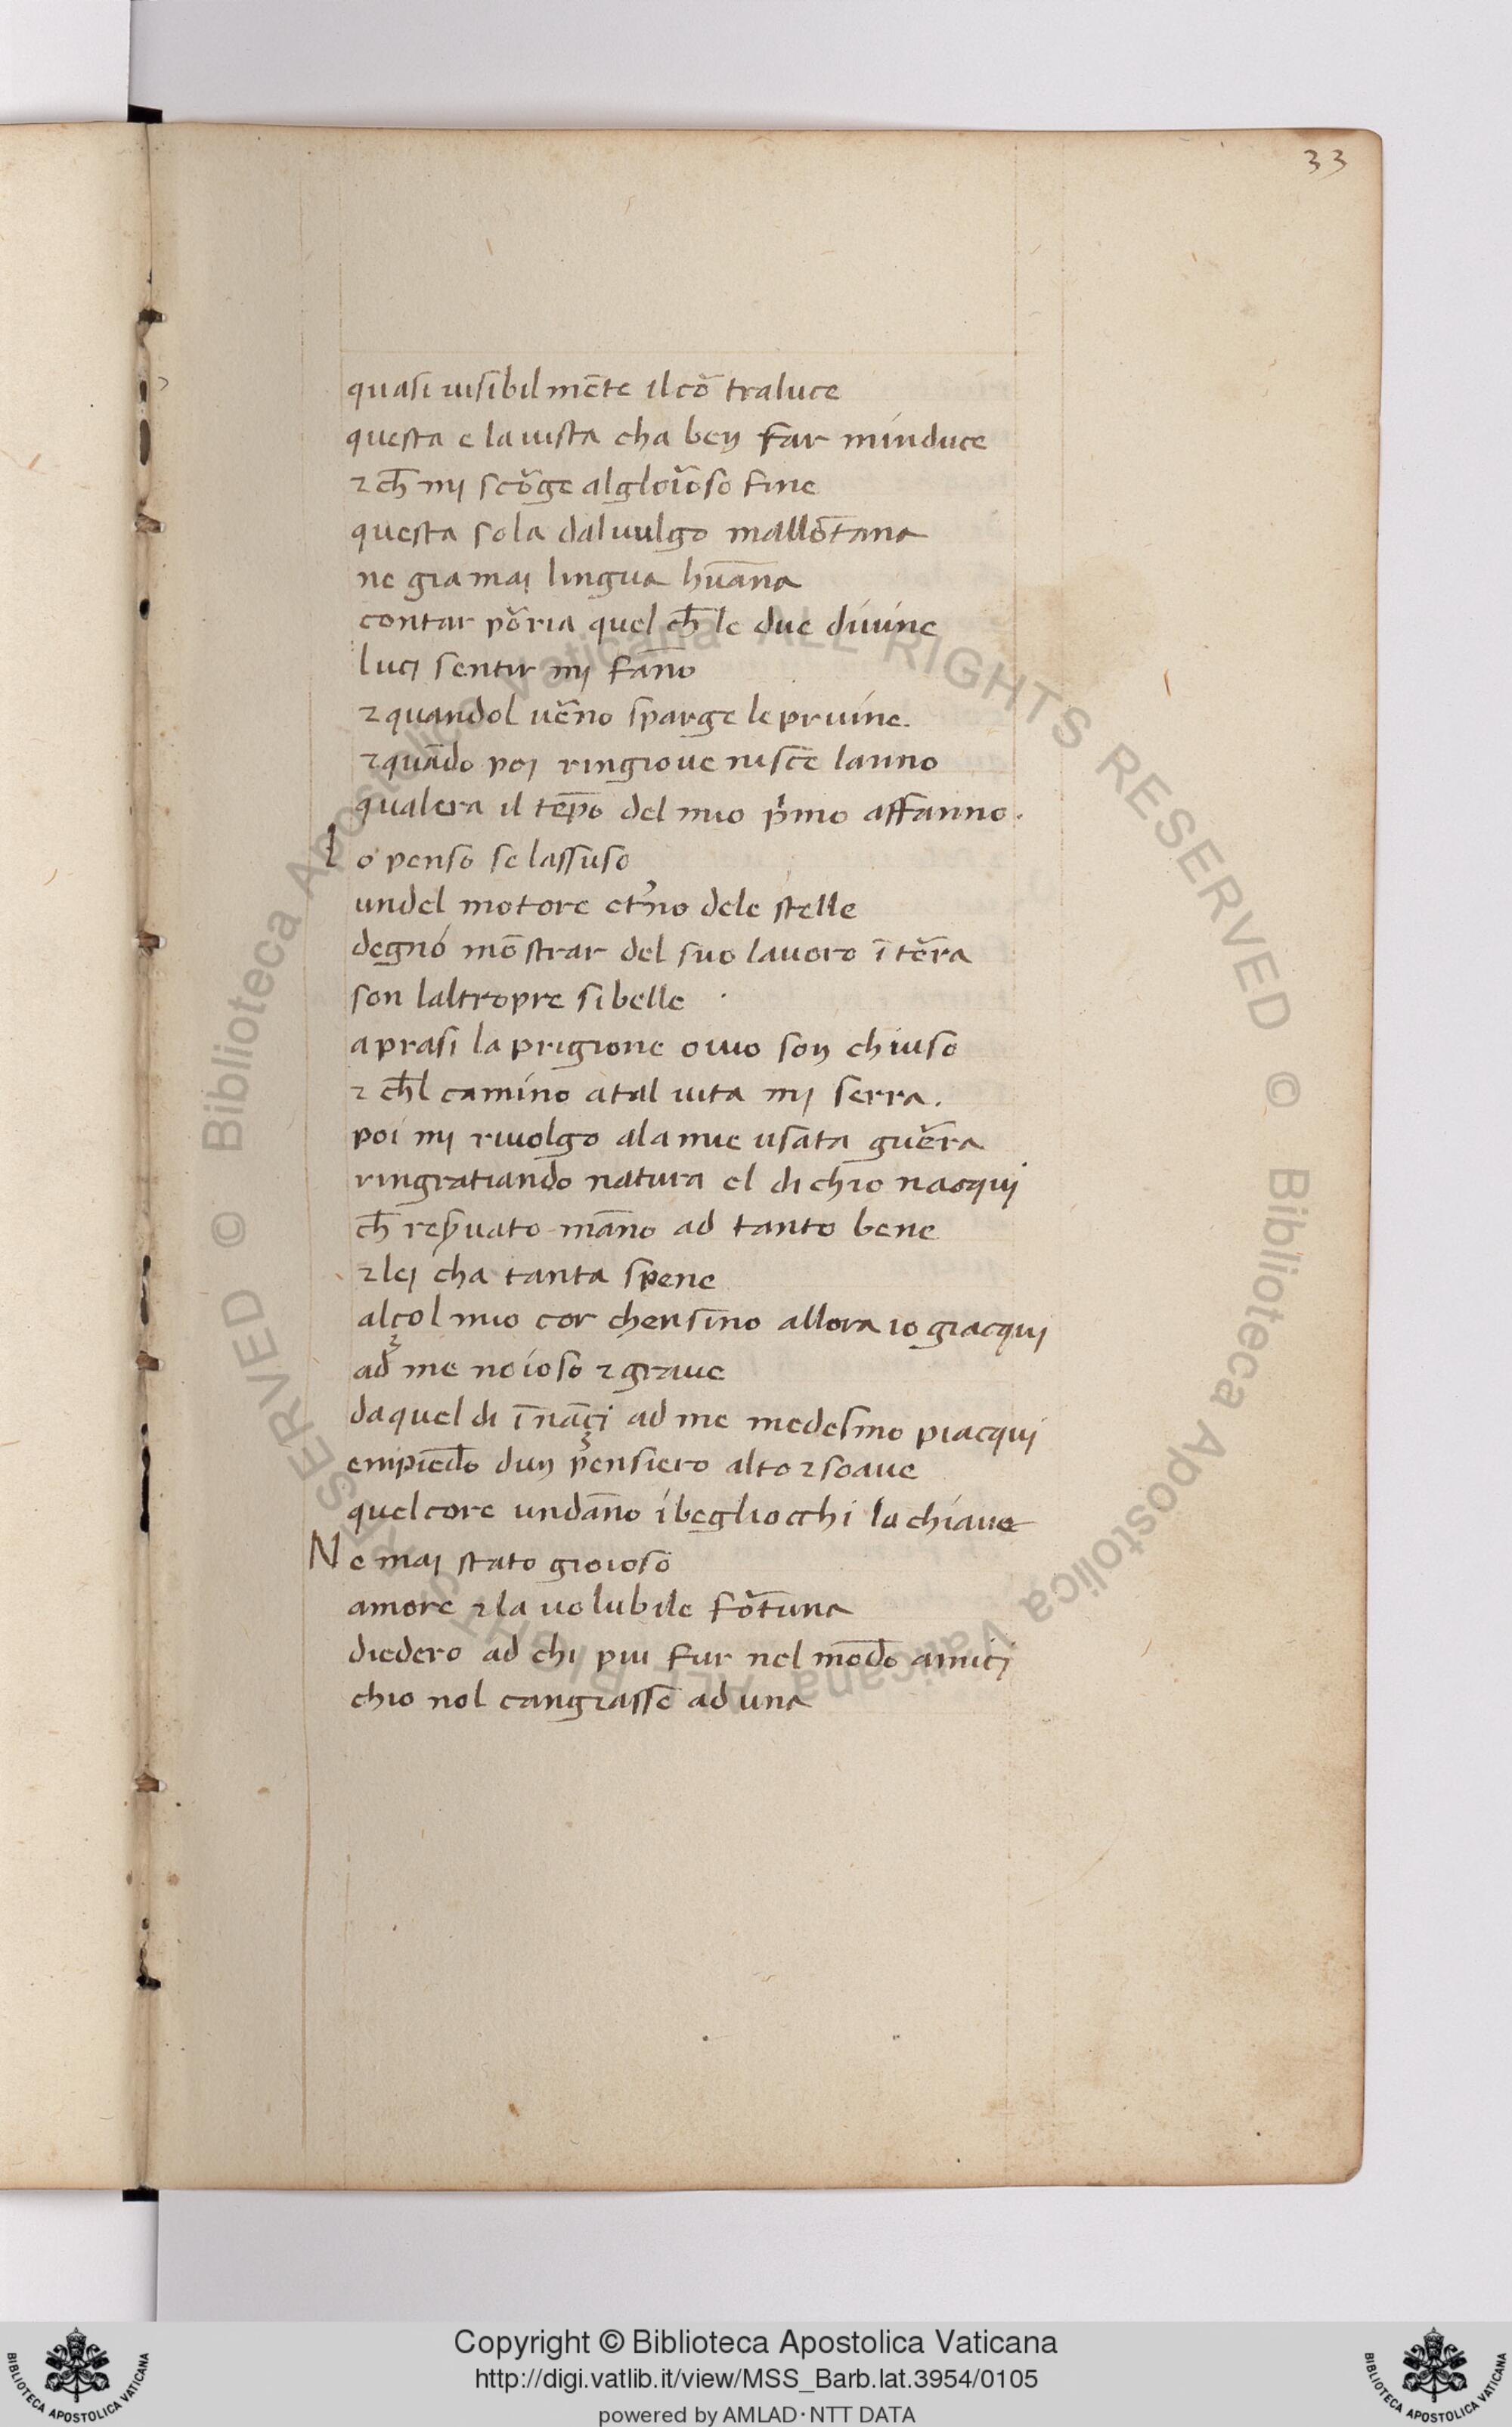 33
quasi uisibilmēte ilcō traluce
questa e lauista cha ben far minduce
⁊ ch̄ mi scōge algloīoso fine
questa sola daluulgo mallōtana
ne gia mai lingua hūana
contar pōria quel ch̄ le due diuine
luci sentir mi fāno
⁊ quandol uēno sparge lepruine.
⁊ quādo poi ringioue nisce lanno
qualera il tēpo del mio pimo affanno.
Io penso se lassuso
undel motore etno dele stelle
degnó mōstrar del suo lauoro ī tēra
son laltropre sibelle
aprasi la prigione ouio son chiuso
⁊ ch̄l camino atal uita mi serra.
poi mi riuolgo ala mie usata guēra
ringratiando natura el di chio nacqui
ch̄ repuato māno ad tanto bene
⁊ lei cha tanta spene
alçol mio cor chensino allora io giacqui
ad me noioso ⁊ graue
daquel di īnāçi ad me medesmo piacqui
empiēdo dun pensiero alto ⁊ soaue
quelcore undāno ibegliocchi la chiaue
Ne mai stato gioioso
amore ⁊ la uolubile fōtuna
diedero ad chi piu fur nel mōdo amici
chio nol cangiasse ad una
© Biblioteca Apostolica Vaticana ALL RIGHTS RESERVED © Biblioteca Apostolica Vaticana ALL RIGHTS RESERVED
Copyright © Biblioteca Apostolica Vaticana
http://digi.vatlib.it/view/MSS_Barb.lat.3954/0105
powered by AMLAD·NTT DATA
BIBLIOTECA APOSTOLICA VATICANA
BIBLIOTECA APOSTOLICA VATICANA